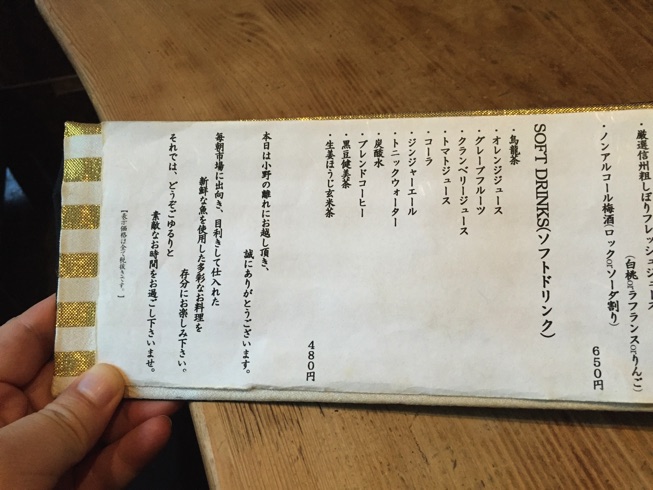 厳選信州粗しぼりフレッシュジュース
(白桃orラフランスorりんご)
・ノンアルコール梅酒(ロックorソーダ割り)
650円
SOFT DRINKS(ソフトドリンク)
・烏龍茶
・オレンジジュース
・グレープフルーツ
・クランベリージュース
・トマトジュース
・コーラ
・ジンジャーエール
・トニックウォーター
・炭酸水
・ブレンドコーヒー
・黒豆健美茶
・生姜ほうじ玄米茶
480円
本日は小野の離れにお越し頂き、
誠にありがとうございます。
毎朝市場に出向き、目利きして仕入れた
新鮮な魚を使用した多彩なお料理を
存分にお楽しみ下さい。
それでは、どうぞごゆるりと
素敵なお時間をお過ごし下さいませ。
【表示価格は全て税抜きです。】